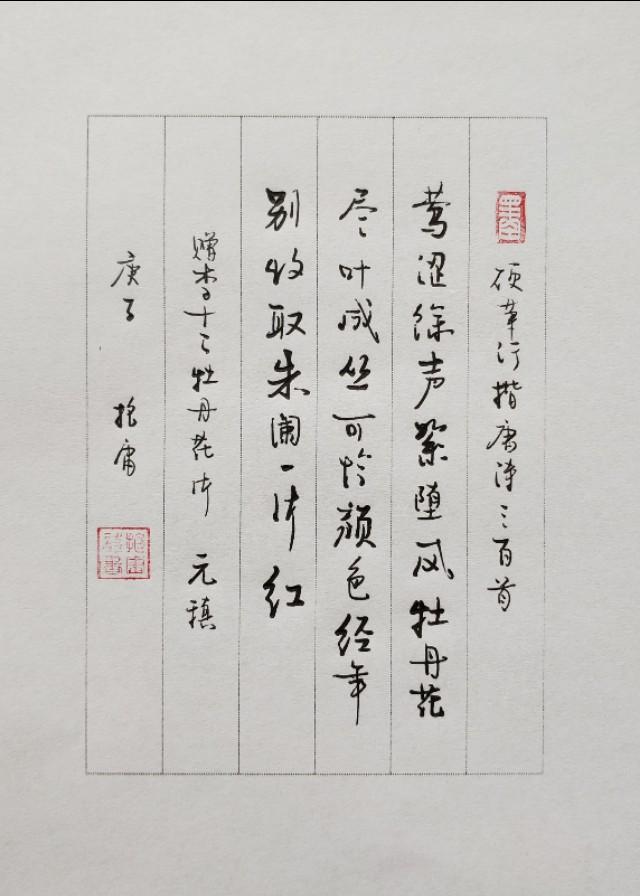 硬笔行楷唐诗三百首
莺涩馀声絮堕风牡丹花
尽叶成丛可怜颜色经年
别收取朱阑一片红
赠李十二牡丹花片 元稹
庚子 抱庸